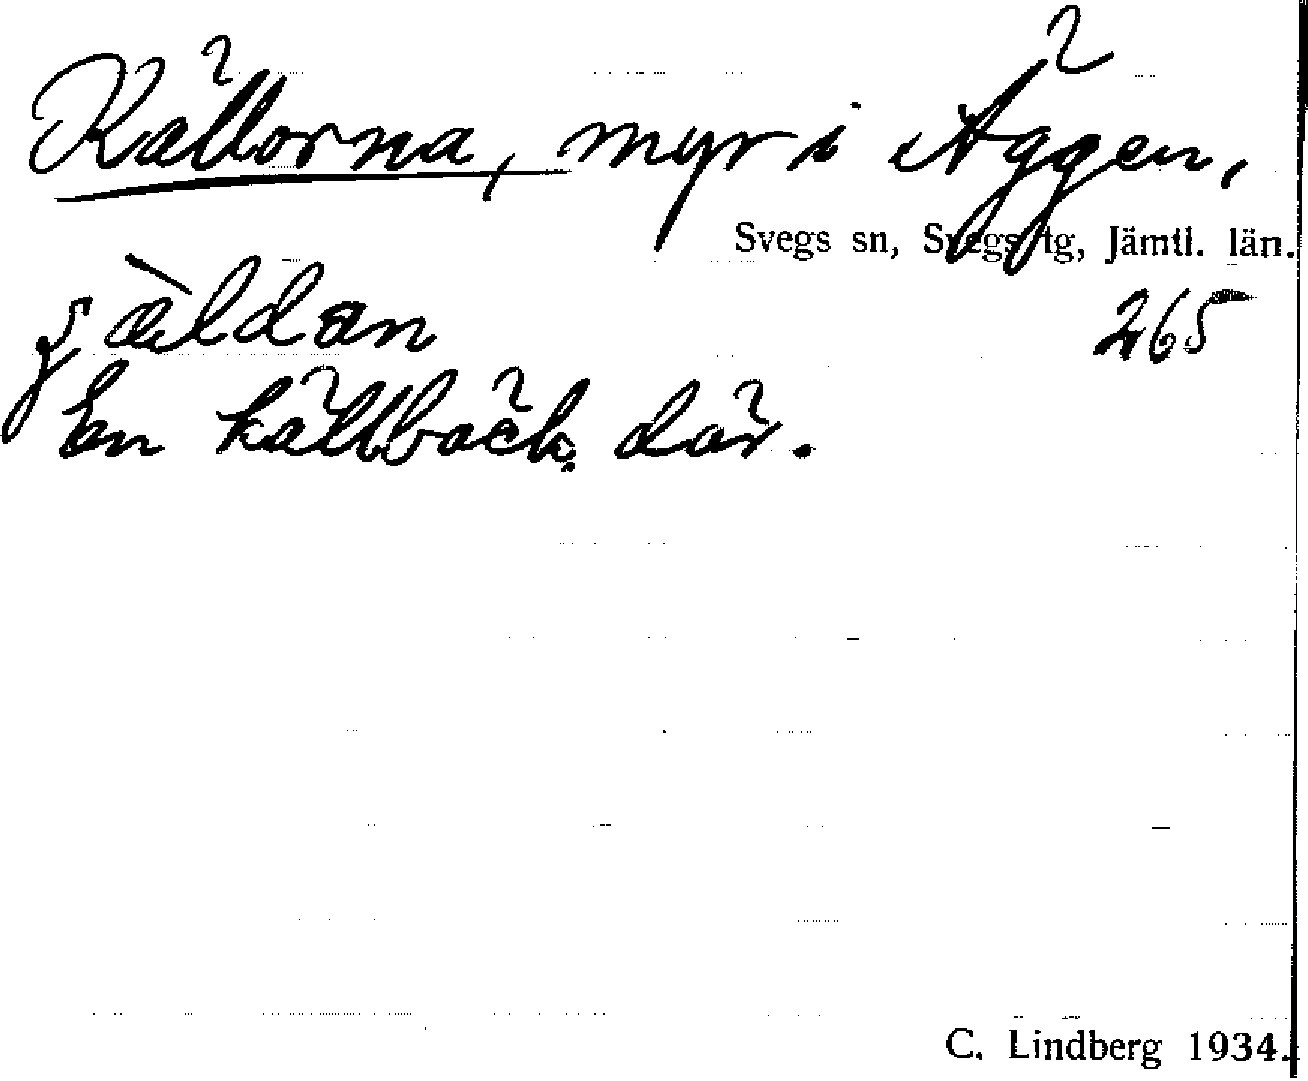 Källorna, myr i Äggen,
Svegs sn, Svegs tg, Jämtl. län.
265
En källbäck där.
C. Lindberg 1934.